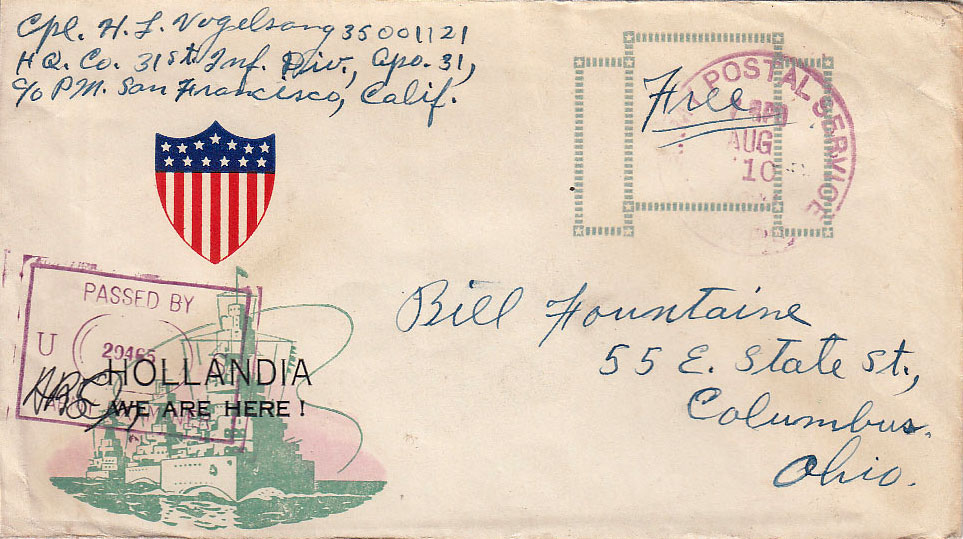 Cpl. H. L. Vogelsang 35001121
HQ. Co. 31st Inf. Div., Apo. 31,
c/o P.M. San Francisco, Calif.
Free
POSTAL SERVICE
AUG
10
PASSED BY
U
29465
HOLLANDIA
WE ARE HERE!
Bill Fountaine
55 E. State St.,
Columbus.
Ohio.